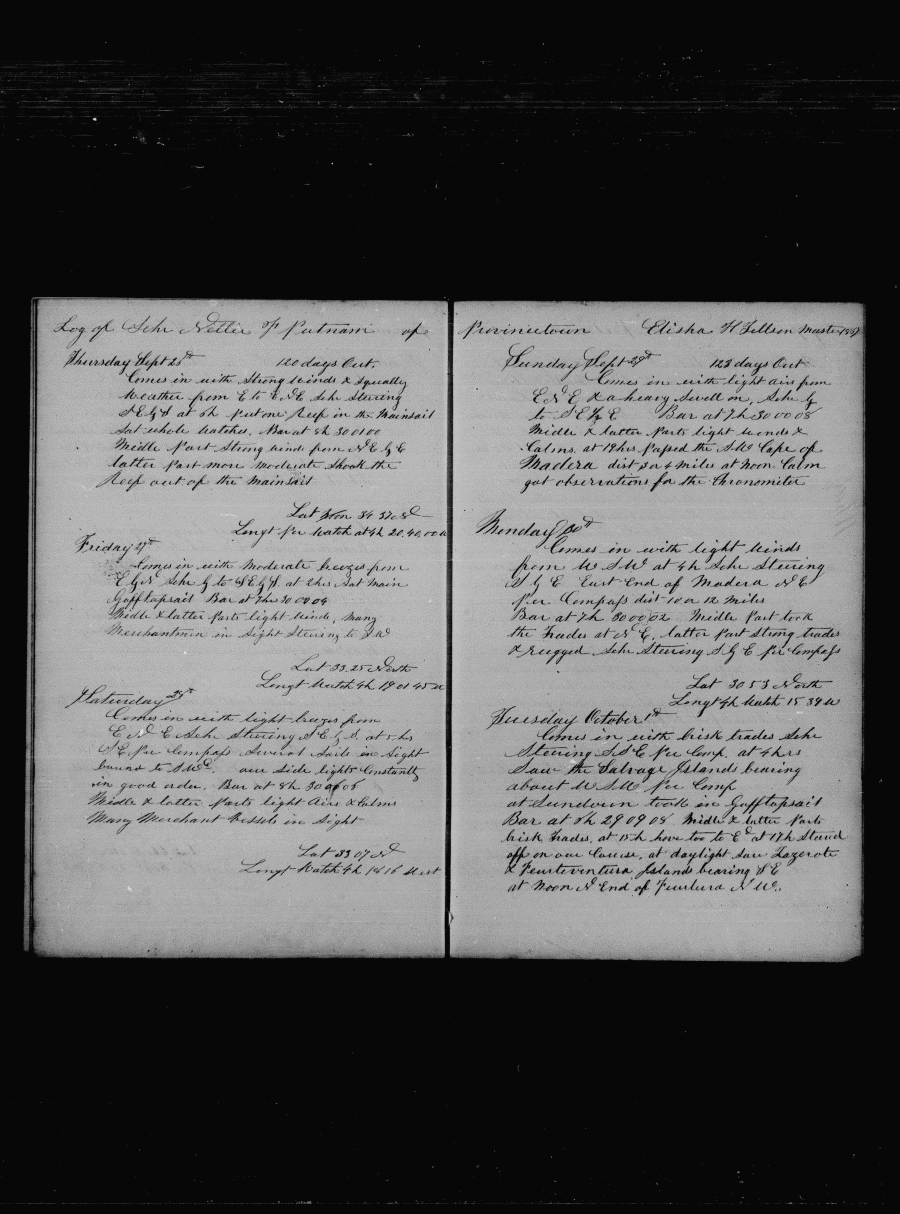 Log of Schr Nettie P Putnam of
Thursday Sept 26th 120 days Out.
Comes in with Strong winds & Squally
Weather from E to E N E Schr Steering
S E by S at 6h Put one Reef in the Mainsail
Sat whole watches. Bar at 8h 30 01 00
Midle Part Strong wind from N E by E
latter Part more moderate Shook the
Reef out of the Mainsail
Lat 34 37 Nd
Longt Per Watch at 4h 20,40,00 W
Friday 27th
Comes in with moderate breezes from
E by N Schr by to S E by S. at 2hrs Sat Main
Gafftopsail Bar at 7hrs 30 00 04
Midle & latter Parts light winds, Many
Merchantmen in Sight Steering to S W
Lat 33.25 North
Longt Watch 4h 19 01 45 W
Saturday 28th
Comes in with light breezes from
E Nd E Schr Steering S E by S. at 5 hrs
S E. Per Compass Several Sails in Sight
bound to S. Wd. our Side lights Constantly
in good order. Bar at 8h 30 00 08
Midle & latter Parts light Airs & Calms
Many Merchant Vessels in Sight
Lat 33 07 Nd
Longt Watch 4h 18 16 West
Provincetown Elisha H Tillson Master
Sunday Sept 29th 123 days Out
Comes in with light airs from
E Nd E & a heavy Swell on, Schr by
to S E ½ E Bar at 7h 30 00 08
Midle & latter Parts light winds &
Calms. at 19hrs Passed the S.W. Cape of
Madera dist 3 or 4 miles at Noon Calm
got observations for the Chronometer
Monday 30th
Comes in with light winds
from W S W at 4h Schr Steering
S by E East End of Madera N E
Per Compass dist 10 or 12 miles
Bar at 7h 30 00 02 Midle Part took
the trades at Nd E. latter Part Strong trades
& rugged Schr Steering S by E Per Compass
Lat 30 53 North
Longt 4h Watch 15 39 W
Tuesday October 1st
Comes in with brisk trades Schr
Steering S S E Per Comp. at 4hrs
Saw the Salvage Islands bearing
about W S W Per Comp
at Sundown took in Gafftopsail
Bar at 6h 29 09 08 Midle & latter Parts
brisk trades, at 15h hove too to Ed at 17h Stood
off on our Course, at daylight Saw Lazerote
& Feurteventura Islands bearing S E
at Noon Nd End of N W.